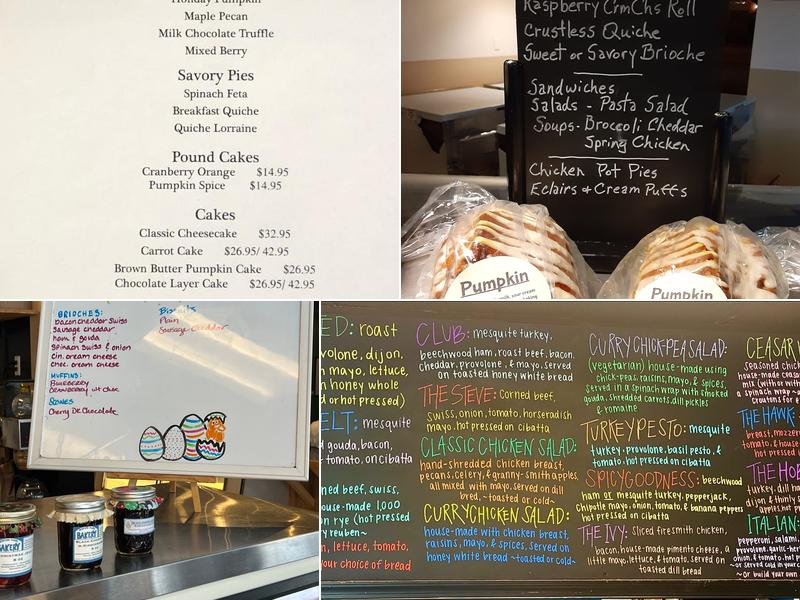 Holiday Pumpkin
Maple Pecan
Milk Chocolate Truffle
Mixed Berry
Savory Pies
Spinach Feta
Breakfast Quiche
Quiche Lorraine
Pound Cakes
Cranberry Orange $14.95
Pumpkin Spice $14.95
Cakes
Classic Cheesecake $32.95
Carrot Cake $26.95/ 42.95
Brown Butter Pumpkin Cake $26.95
Chocolate Layer Cake $26.95/ 42.95
Raspberry CrmChs Roll
Crustless Quiche
Sweet or Savory Brioche
Sandwiches
Salads - Pasta Salad
Soups - Broccoli Cheddar
Spring Chicken
Chicken Pot Pies
Eclairs & Cream Puffs
Pumpkin
Pumpkin
BRIOCHES:
bacon cheddar swiss
Sausage cheddar
ham & gouda
Spinach swiss & onion
cin. cream cheese
choc. cream cheese
MUFFINS:
BLUEBERRY
CRANBERRY wt choc
SCONES
Cherry DK Chocolate
Biscuits
Plain
Sausage Cheddar
BAKERY
BAKERY
ED: roast
volone, dijon,
mayo, lettuce,
n honey whole
d or hot pressed)
ELT: mesquite
d gouda, bacon,
tomato, on cibatta
ned beef, swiss,
ouse-made 1,000
on rye (hot pressed
y reuben~
m, lettuce, tomato,
your choice of bread
CLUB: mesquite turkey,
beechwood ham, roast beef, bacon,
cheddar, provolone, & mayo, served
on toasted honey white bread
THE STEVE: Corned beef,
swiss, onion, tomato, horseradish
mayo. hot pressed on cibatta
CLASSIC CHICKEN SALAD:
hand-shredded chicken breast,
pecans, celery, & granny-smith apples,
all mixed with mayo, served on dill
bread, ~toasted or cold~
CURRY CHICKEN SALAD:
house-made with chicken breast,
raisins, mayo, & spices, served on
honey white bread ~toasted or cold~
CURRY CHICK-PEA SALAD:
(vegetarian) house-made using
chick-peas, raisins, mayo, & spices,
served in a spinach wrap with smoked
gouda, shredded carrots, dill pickles
& romaine
TURKEY PESTO: mesquite
turkey, provolone, basil pesto, &
tomato, hot pressed on cibatta
SPICY GOODNESS: beechwood
ham or mesquite turkey, pepperjack,
chipotle mayo, onion, tomato, & banana peppers
hot pressed on cibatta
THE IVY: sliced firesmith chicken,
bacon, house-made pimento cheese, a
little mayo, lettuce, & tomato, served on
toasted dill bread
CEASAR
Seasoned chick
house-made ceasa
mix (with or with
a spinach wrap ~
croutons for
THE HAWK:
breast, mozzer
tomato, & house
hot pressed
THE HOB
turkey, dill hav
ion & thinly s
apples, hot press
ITALIAN:
pepperoni, salami,
provolone, garlic-her
onion, & tomato, hot pre
~or served cold in your c
~or build your own